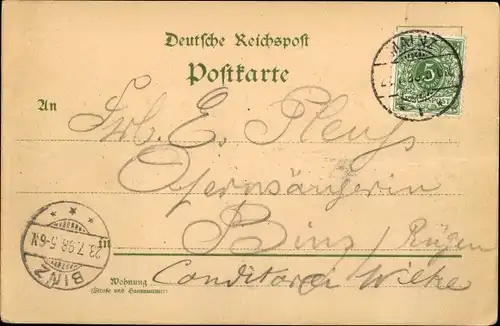 Deutsche Reichspost
Postkarte
MAINZ
5
An
Frl. E. Pleuß
Opernsängerin
in Binz / Rügen
BINZ
23.7.98.5-6N.
Wohnung
(Straße und Hausnummer)
Conditorei Wilke